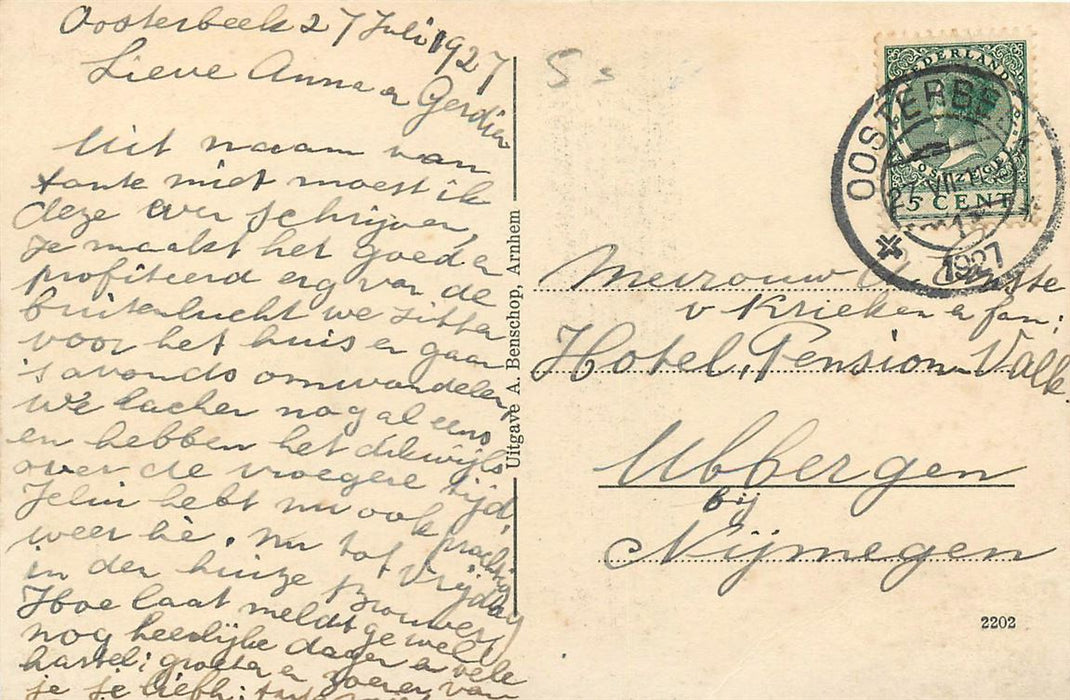 Oosterbeek 27 Juli 1927
Lieve Anna en Gerdien
Uit naam van
tante miet moest ik
deze even schrijven,
ze maakt het goed en
profiteerd erg van de
buitenlucht we zitten
voor het huis en gaan
's avonds omwandelen,
We lachen nog al eens
en hebben het dikwijls
over de vroegere tijd,
Jelui hebt nu ook prachtig
weer hè. nu tot Vrijdag
in den huize Brouwers
Hoe laat meldt ge wel
nog heerlijke dagen en vele
hartel: groeten en zoenen van
je je liefh: tante
Uitgave A. Benschop, Arnhem
5
NEDERLAND
POSTZEGEL
5 CENT
OOSTERBEEK
27 VII
1927
Mevrouw
v Krieken en fam:
Hotel, Pension Valk
Ubbergen
bij
Nijmegen
2202